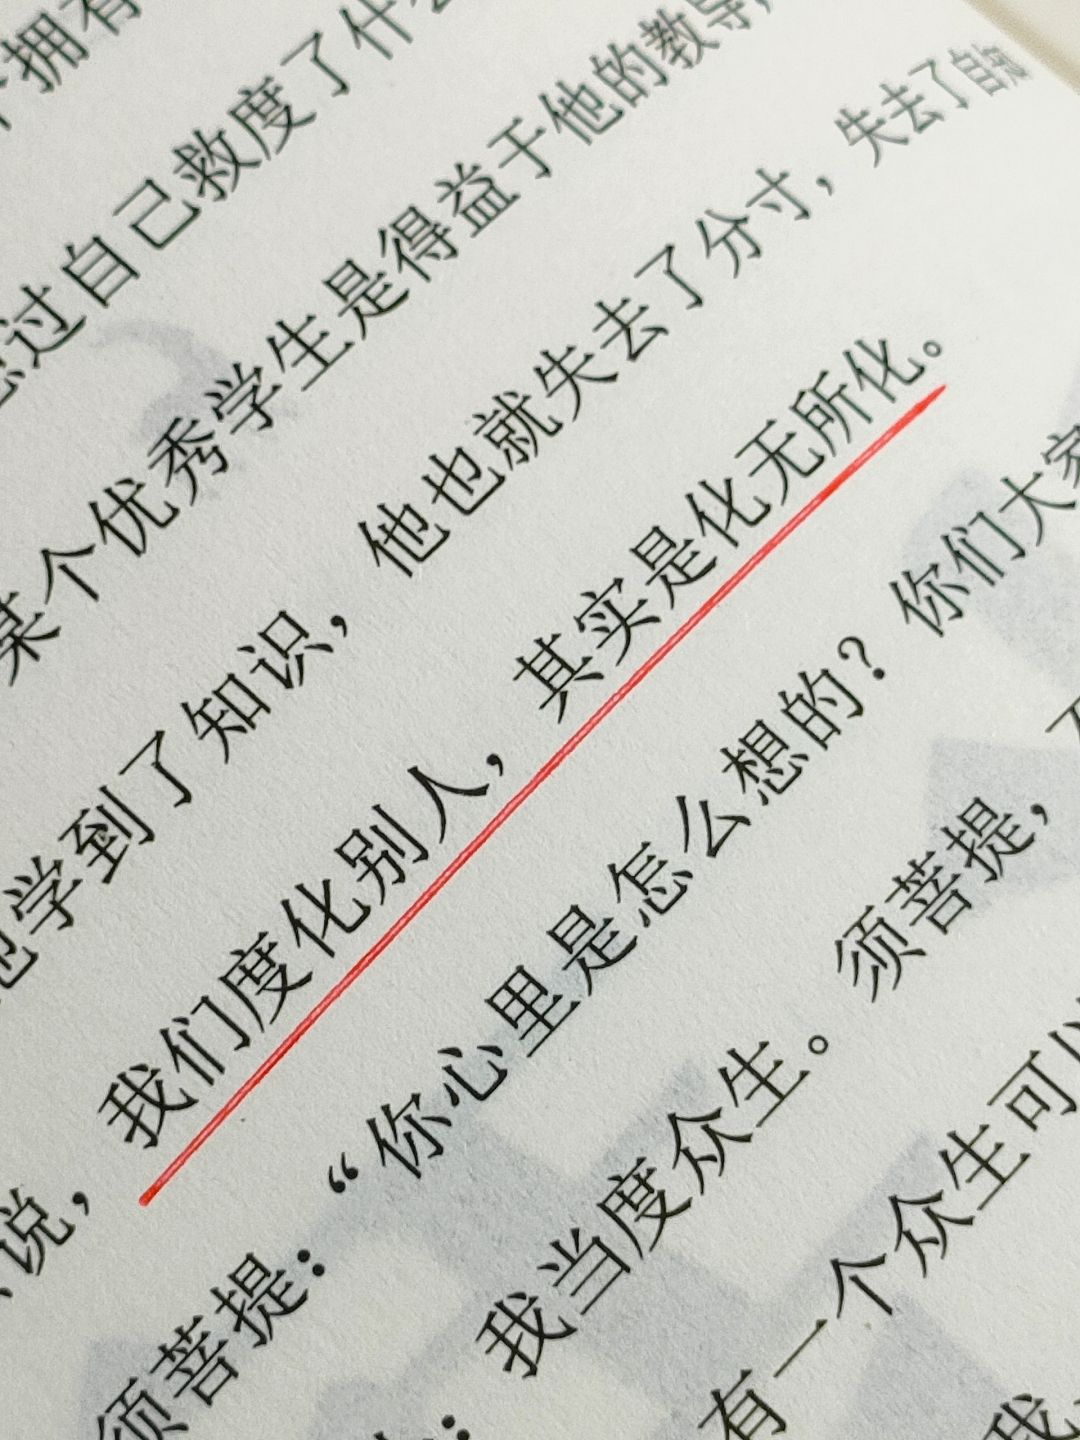 拥有
过自己救度了什么
某个优秀学生是得益于他的教导，
学到了知识，他也就失去了分寸，失去了自知
说，我们度化别人，其实是化无所化。
须菩提：“你心里是怎么想的？你们大家
我当度众生。须菩提，
有一个众生可以
我